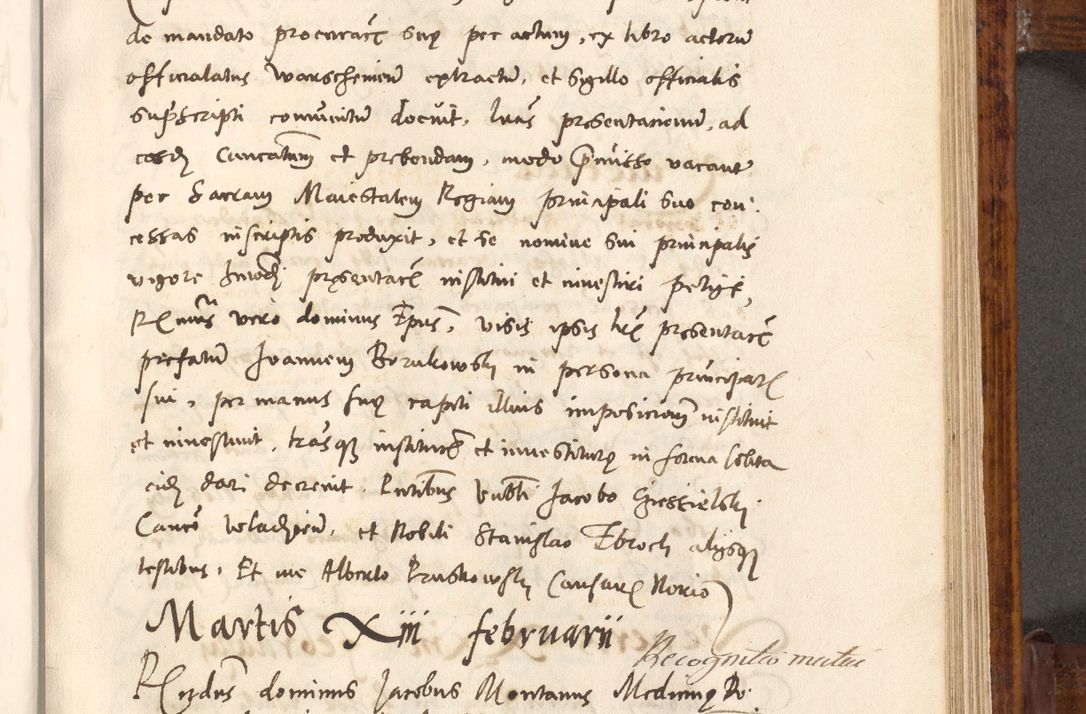 de mandato procuratoris suę per actum, ex libro actorum
officialatus Warscheniensi extractum, et sigillo officialis
supscripti communitum docuit, lras presentacionum, ad
eosdem Canonicatum et prebendam, modo premisso vacantem
per Sacram Maiestatem Regiam principali suo con-
cessas in scriptis produxit, et se nomine sui principalis
vigore presentacionis institui et investiri petiit,
Rmus vero dominus Epus, visis ipsis lris presentacionis
prefatum Joannem Borukowski in persona principalis
sui, per manus suę capiti illius imposicionem instituit
et investivit, lrasque institucionis et investiturę in forma solita
eidem dari decrevit. Pntibus Venbli Jacobo Gieskielski
Canco Uladislavien, et Nobili Stanislao Zbroch aliisque
testibus, Et me Alberto Pruskowski Causarum Notario
Martis Xiii februarii
Recognitio mutui
Rndus dominus Jacobus Montanus Medicinę Do-